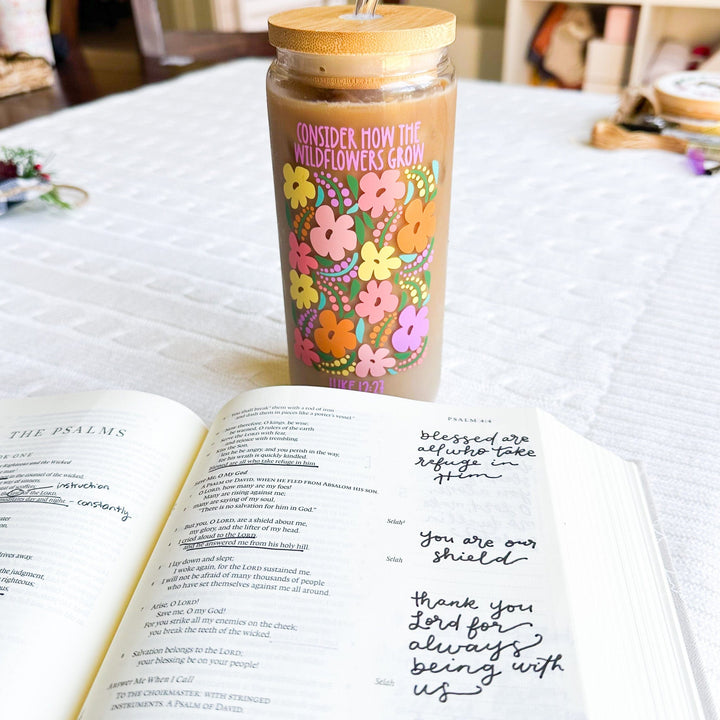 CONSIDER HOW THE
WILDFLOWERS GROW
LUKE 12:27
THE PSALMS
BOOK ONE
instruction
constantly
the judgment,
righteous;
"You shall break them with a rod of iron
and dash them in pieces like a potter's vessel."
Now therefore, O kings, be wise;
be warned, O rulers of the earth.
Serve the LORD with fear,
and rejoice with trembling.
Kiss the Son,
lest he be angry, and you perish in the way,
for his wrath is quickly kindled.
Blessed are all who take refuge in him.
Save Me, O My God
A PSALM OF DAVID, WHEN HE FLED FROM ABSALOM HIS SON.
O LORD, how many are my foes!
Many are rising against me;
many are saying of my soul,
"There is no salvation for him in God."
Selah
But you, O LORD, are a shield about me,
my glory, and the lifter of my head.
I cried aloud to the LORD,
and he answered me from his holy hill.
Selah
I lay down and slept;
I woke again, for the LORD sustained me.
I will not be afraid of many thousands of people
who have set themselves against me all around.
Arise, O LORD!
Save me, O my God!
For you strike all my enemies on the cheek;
you break the teeth of the wicked.
Salvation belongs to the LORD;
your blessing be on your people!
Selah
Answer Me When I Call
TO THE CHOIRMASTER: WITH STRINGED
INSTRUMENTS. A PSALM OF DAVID.
PSALM 4:4
blessed are
all who take
refuge in
Him
You are our
shield
thank you
Lord for
always
being with
us